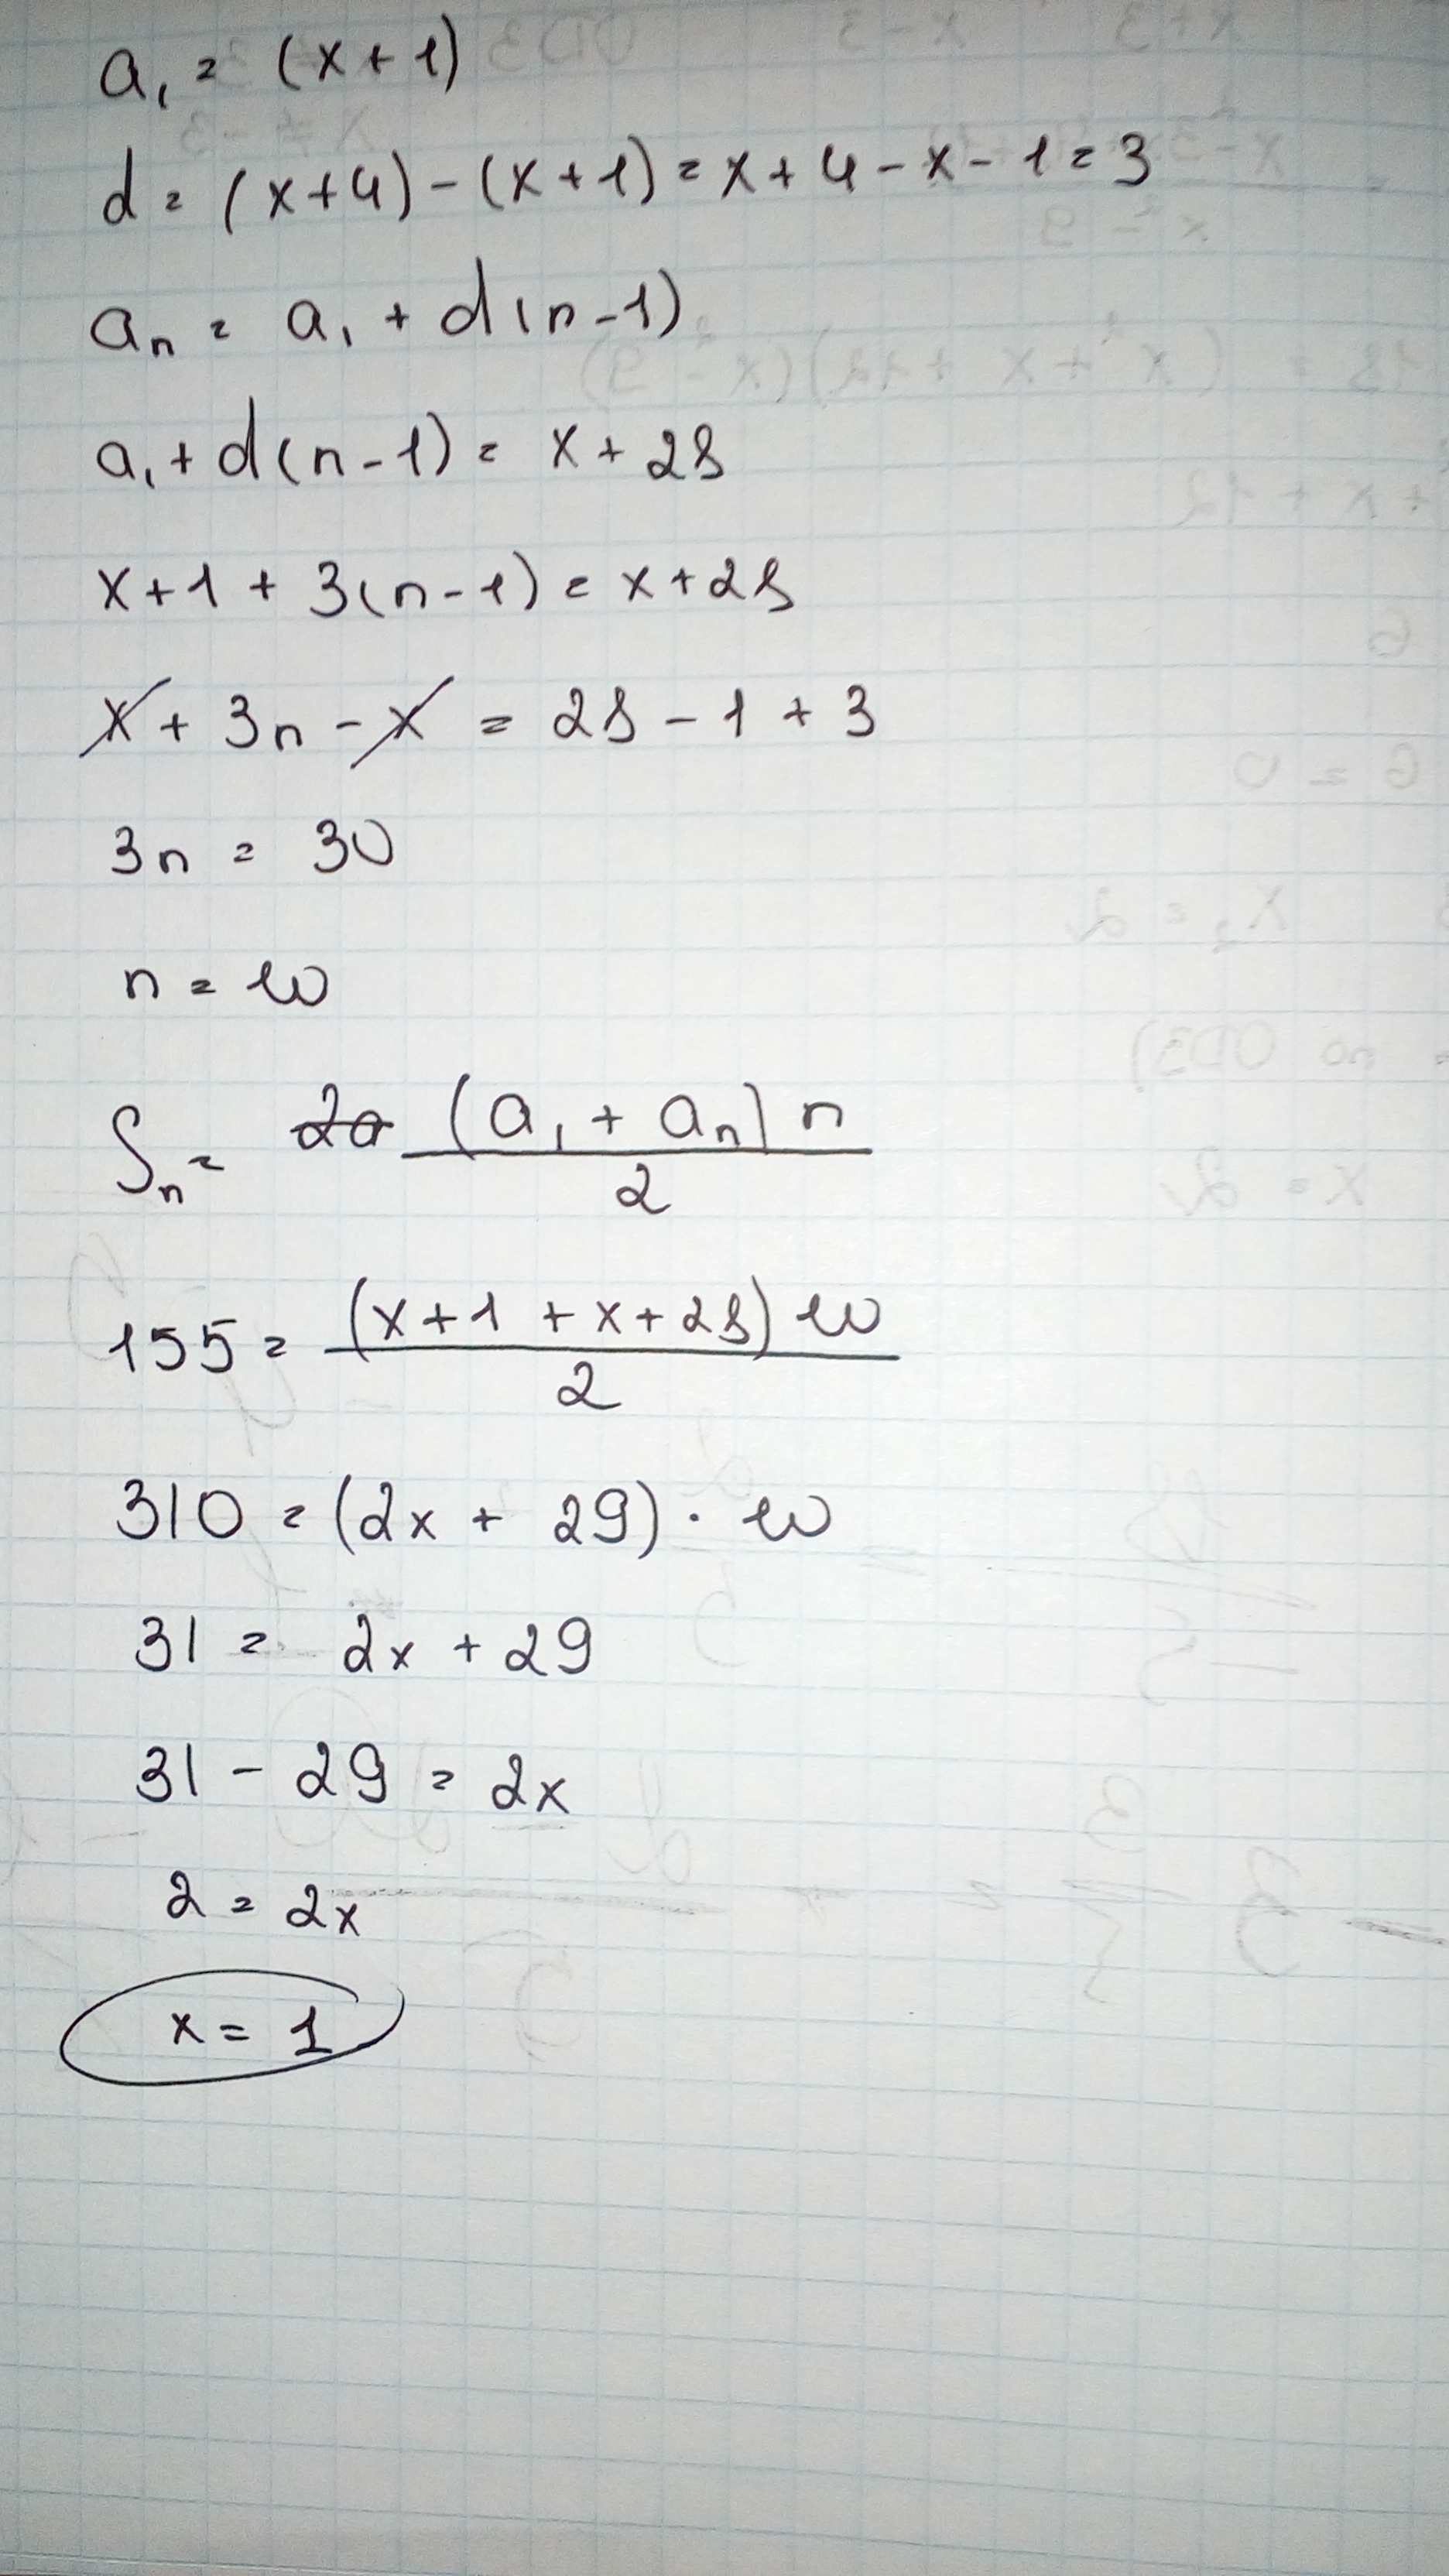 a₁ = (x + 1)
d = (x+4) - (x+1) = x + 4 - x - 1 = 3
aₙ = a₁ + d(n-1)
a₁ + d(n-1) = x + 28
x + 1 + 3(n-1) = x + 28
x + 3n - x = 28 - 1 + 3
3n = 30
n = 10
Sₙ = 2a (a₁ + aₙ) n / 2
155 = (x+1 + x+28) 10 / 2
310 = (2x + 29) · 10
31 = 2x + 29
31 - 29 = 2x
2 = 2x
x = 1